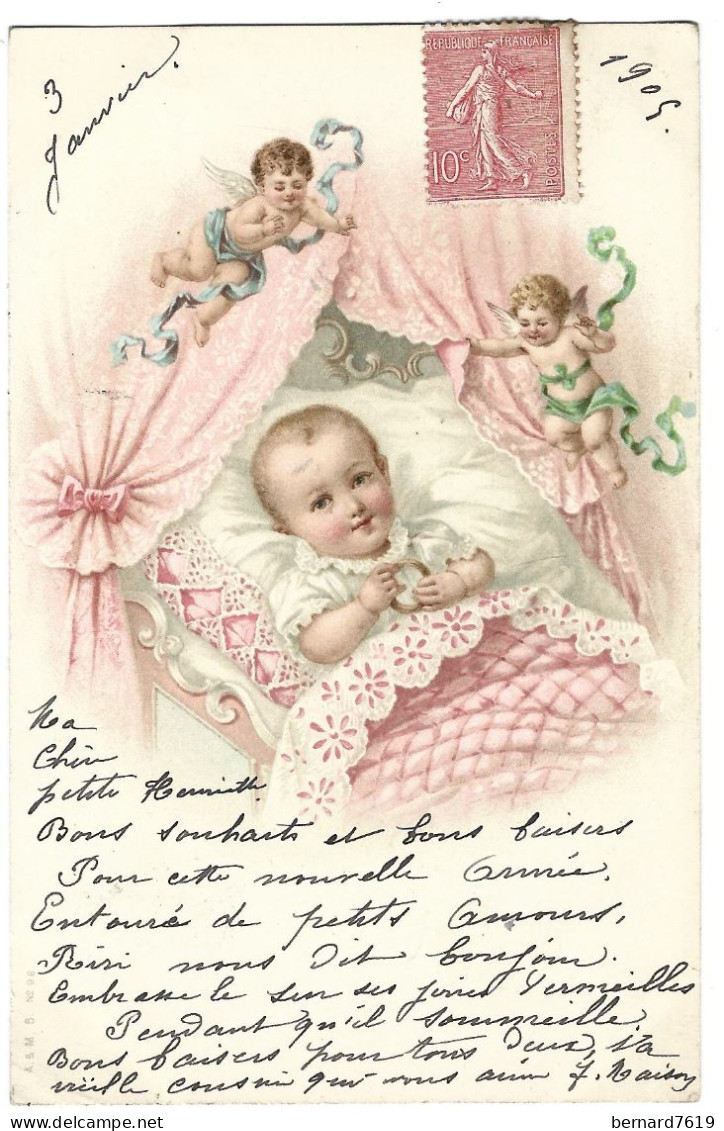 3
Janvier.
1905.
REPUBLIQUE FRANÇAISE
10c
POSTES
Ma
Chère
petite Henriette.
Bons souhaits et bons baisers
Pour cette nouvelle Année.
Entouré de petits Amours,
Riri nous dit bonjour.
Embrasse le sur ses joues Vermeilles
Pendant qu'il sommeille.
Bons baisers pour tous deux, ta
vieille cousine qui vous aime J.
A. & M. B. No 96
delcampe.net
bernard7619